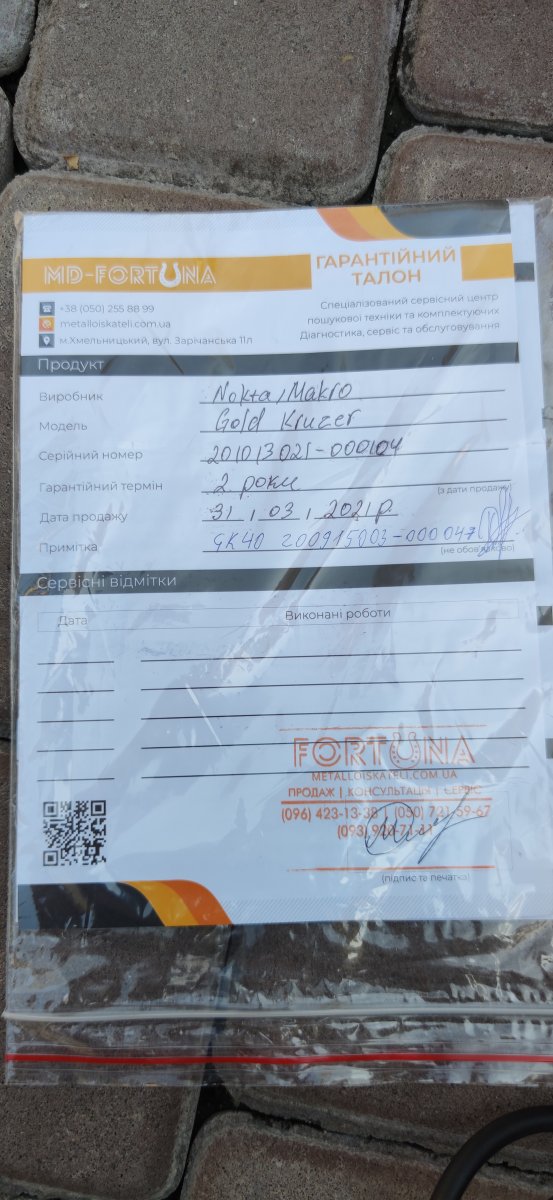 MD-FORTUNA
ГАРАНТІЙНИЙ
ТАЛОН
+38 (050) 255 88 99
metalloiskateli.com.ua
м.Хмельницький, вул. Зарічанська 11л
Спеціалізований сервісний центр
пошукової техніки та комплектуючих
Діагностика, сервіс та обслуговування
Продукт
Виробник Nokta/Makro
Модель Gold Kruzer
Серійний номер 201013021-000104
Гарантійний термін 2 роки (з дати продажу)
Дата продажу 31 . 03 . 2021р
Примітка GK40 200915003-000047 (не обов'язково)
Сервісні відмітки
Дата Виконані роботи
FORTUNA
METALLOISKATELI.COM.UA
ПРОДАЖ | КОНСУЛЬТАЦІЇ | СЕРВІС
(096) 423-13-38 | (050) 731-59-67
(093)
(підпис та печатка)